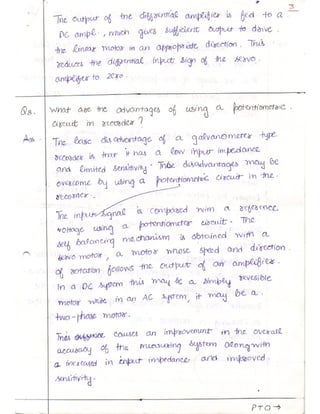 3
The output of the differential amplifier is fed to a
DC ampl., which gives sufficient output to drive
the linear motor in an appropriate direction. This
reduces the differential input sign of the servo
amplifier to zero.
Q8. What are the advantages of using a potentiometric
circuit in recorder?
Ans The base disadvantage of a galvanometer type
recorder is that it has a low input impedance
and limited sensitivity. These disadvantages may be
overcome by using a potentiometric circuit in the
recorder.
The input signal is compared with a reference
voltage using a potentiometer circuit. The
self balancing mechanism is obtained with a
servo motor, a motor whose speed and direction
of rotation follows the output of an amplifier.
In a DC system this may be a simply reversible
motor while in an AC system, it may be a
two-phase motor.
This causes an improvement in the overall
accuracy of the measuring system alongwith
a increased in input impedance and improved
sensitivity.
PTO →